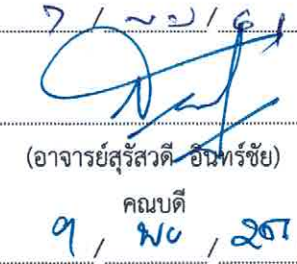 7 / / 61
(อาจารย์สุรัสวดี อินทร์ชัย)
คณบดี
9 / พย / 2561